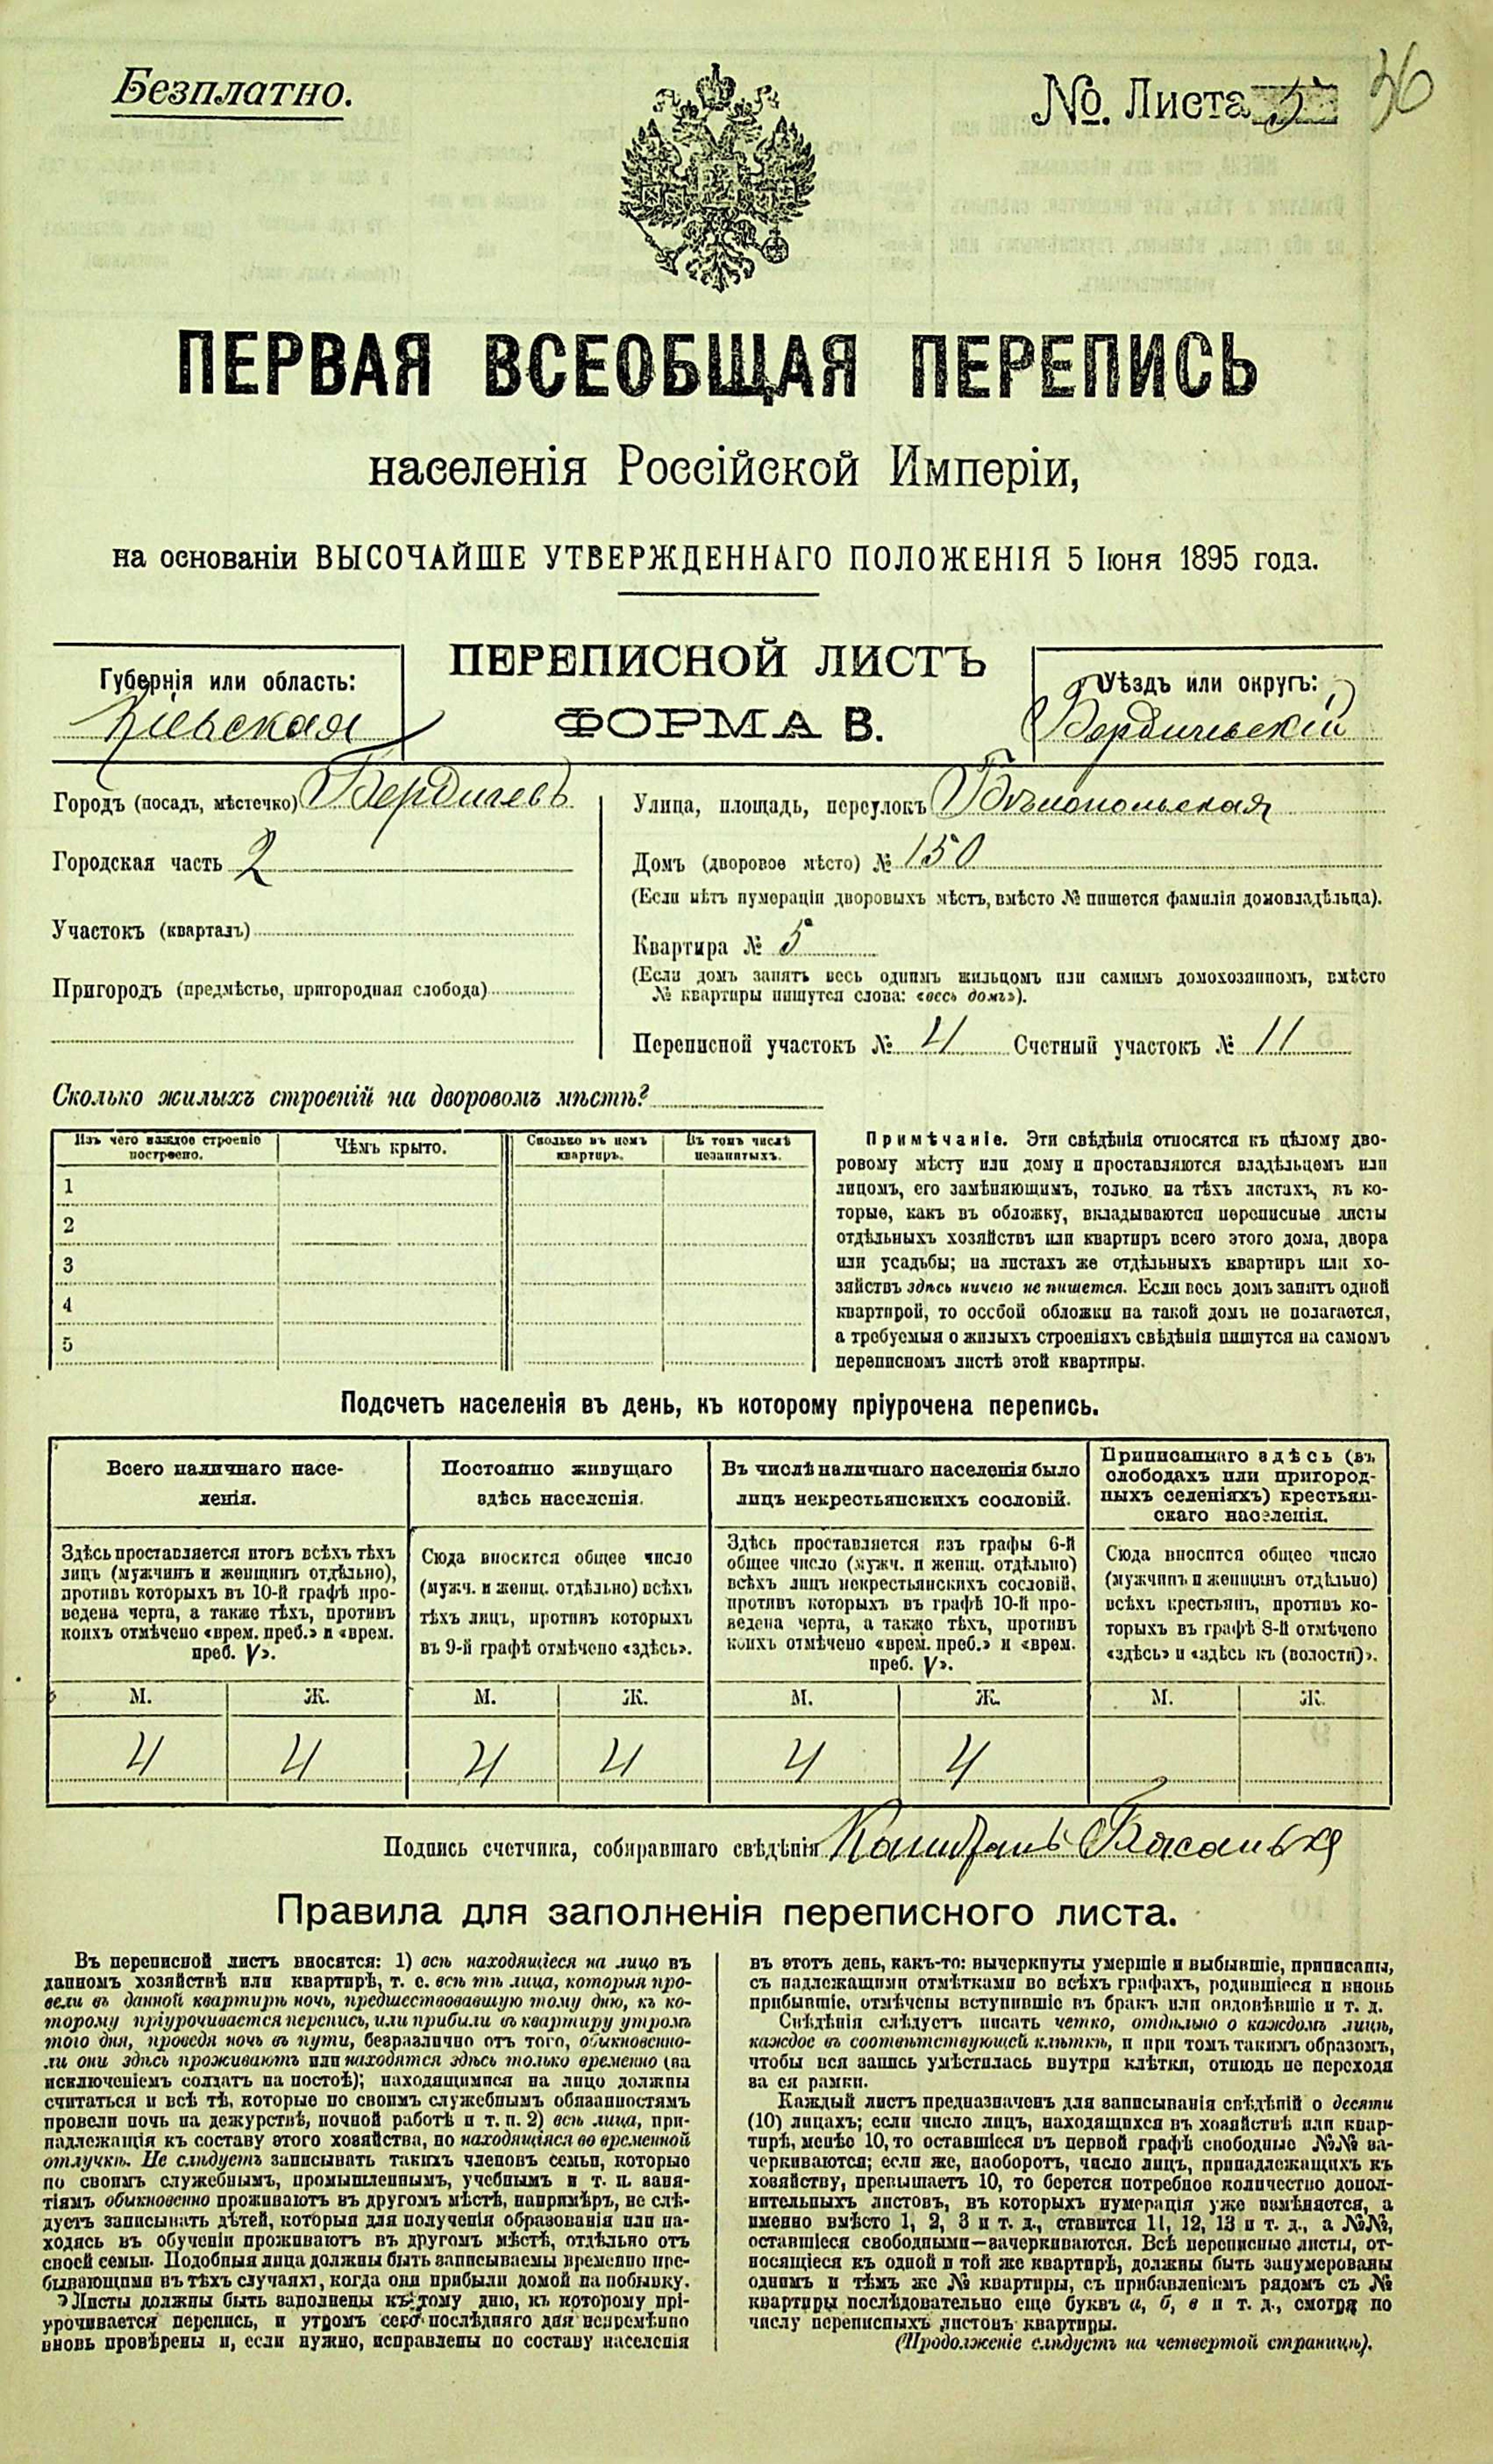 Безплатно.
№. Листа 5
36
ПЕРВАЯ ВСЕОБЩАЯ ПЕРЕПИСЬ
населенія Россійской Имперіи,
на основаніи ВЫСОЧАЙШЕ УТВЕРЖДЕННАГО ПОЛОЖЕНІЯ 5 Іюня 1895 года.
Губернія или область:
Кіевская
ПЕРЕПИСНОЙ ЛИСТЪ
ФОРМА В.
Уѣздъ или округъ:
Бердичевскій
Городъ (посадъ, мѣстечко) Бердичевъ
Городская часть 2
Участокъ (кварталъ)
Пригородъ (предмѣстье, пригородная слобода)
Улица, площадь, переулокъ Бѣлопольская
Домъ (дворовое мѣсто) № 150
(Если нѣтъ нумераціи дворовыхъ мѣстъ, вмѣсто № пишется фамилія домовладѣльца).
Квартира № 5
(Если домъ занятъ весь однимъ жильцомъ или самимъ домохозяиномъ, вмѣсто
№ квартиры пишутся слова: «весь домъ»).
Переписной участокъ № 4 Счетный участокъ № 11
Сколько жилыхъ строеній на дворовомъ мѣстѣ?
Изъ чего каждое строеніе построено.
Чѣмъ крыто.
Сколько въ немъ квартиръ.
Въ томъ числѣ незанятыхъ.
1
2
3
4
5
Примѣчаніе. Эти свѣдѣнія относятся къ цѣлому дво-
ровому мѣсту или дому и проставляются владѣльцемъ или
лицомъ, его замѣняющимъ, только на тѣхъ листахъ, въ ко-
торые, какъ въ обложку, вкладываются переписные листы
отдѣльныхъ хозяйствъ или квартиръ всего этого дома, двора
или усадьбы; на листахъ же отдѣльныхъ квартиръ или хо-
зяйствъ здѣсь ничего не пишется. Если весь домъ занятъ одной
квартирой, то особой обложки на такой домъ не полагается,
а требуемыя о жилыхъ строеніяхъ свѣдѣнія пишутся на самомъ
переписномъ листѣ этой квартиры.
Подсчетъ населенія въ день, къ которому пріурочена перепись.
Всего наличнаго насе-
ленія.
Здѣсь проставляется итогъ всѣхъ тѣхъ
лицъ (мужчинъ и женщинъ отдѣльно),
противъ которыхъ въ 10-й графѣ про-
ведена черта, а также тѣхъ, противъ
коихъ отмѣчено «врем. преб.» и «врем.
преб. V».
Постоянно живущаго
здѣсь населенія.
Сюда вносится общее число
(мужч. и женщ. отдѣльно) всѣхъ
тѣхъ лицъ, противъ которыхъ
въ 9-й графѣ отмѣчено «здѣсь».
Въ числѣ наличнаго населенія было
лицъ некрестьянскихъ сословій.
Здѣсь проставляется изъ графы 6-й
общее число (мужч. и женщ. отдѣльно)
всѣхъ лицъ некрестьянскихъ сословій,
противъ которыхъ въ графѣ 10-й про-
ведена черта, а также тѣхъ, противъ
коихъ отмѣчено «врем. преб.» и «врем.
преб. V».
Приписаннаго здѣсь (въ
слободахъ или пригород-
ныхъ селеніяхъ) крестьян-
скаго населенія.
Сюда вносится общее число
(мужчинъ и женщинъ отдѣльно)
всѣхъ крестьянъ, противъ ко-
торыхъ въ графѣ 8-й отмѣчено
«здѣсь» и «здѣсь къ (волости)».
М. Ж. М. Ж. М. Ж. М. Ж.
4 4 4 4 4 4
Подпись счетчика, собиравшаго свѣдѣнія
Правила для заполненія переписного листа.
Въ переписной листъ вносятся: 1) всѣ находящіеся на лицо въ
данномъ хозяйствѣ или квартирѣ, т. е. всѣ тѣ лица, которыя про-
вели въ данной квартирѣ ночь, предшествовавшую тому дню, къ ко-
торому пріурочивается перепись, или прибыли въ квартиру утромъ
того дня, проведя ночь въ пути, безразлично отъ того, обыкновенно-
ли они здѣсь проживаютъ или находятся здѣсь только временно (за
исключеніемъ солдатъ на постоѣ); находящимися на лицо должны
считаться и всѣ тѣ, которые по своимъ служебнымъ обязанностямъ
провели ночь на дежурствѣ, ночной работѣ и т. п. 2) всѣ лица, при-
надлежащія къ составу этого хозяйства, но находящіяся во временной
отлучкѣ. Не слѣдуетъ записывать такихъ членовъ семьи, которые
по своимъ служебнымъ, промышленнымъ, учебнымъ и т. п. заня-
тіямъ обыкновенно проживаютъ въ другомъ мѣстѣ, напримѣръ, не слѣ-
дуетъ записывать дѣтей, которыя для полученія образованія или на-
ходясь въ обученіи проживаютъ въ другомъ мѣстѣ, отдѣльно отъ
своей семьи. Подобныя лица должны быть записываемы временно пре-
бывающими въ тѣхъ случаяхъ, когда они прибыли домой на побывку.
Листы должны быть заполнены къ тому дню, къ которому прі-
урочивается перепись, и утромъ сего послѣдняго дня непремѣнно
вновь провѣрены и, если нужно, исправлены по составу населенія
въ этотъ день, какъ-то: вычеркнуты умершіе и выбывшіе, приписаны,
съ надлежащими отмѣтками во всѣхъ графахъ, родившіеся и вновь
прибывшіе, отмѣчены вступившіе въ бракъ или овдовѣвшіе и т. д.
Свѣдѣнія слѣдуетъ писать четко, отдѣльно о каждомъ лицѣ,
каждое въ соотвѣтствующей клѣткѣ, и при томъ такимъ образомъ,
чтобы вся запись умѣстилась внутри клѣтки, отнюдь не переходя
за ея рамки.
Каждый листъ предназначенъ для записыванія свѣдѣній о десяти
(10) лицахъ; если число лицъ, находящихся въ хозяйствѣ или квар-
тирѣ, менѣе 10, то оставшіеся въ первой графѣ свободные №№ за-
черкиваются; если же, наоборотъ, число лицъ, принадлежащихъ къ
хозяйству, превышаетъ 10, то берется потребное количество допол-
нительныхъ листовъ, въ которыхъ нумерація уже измѣняется, а
именно вмѣсто 1, 2, 3 и т. д., ставится 11, 12, 13 и т. д., а №№,
оставшіеся свободными—зачеркиваются. Всѣ переписные листы, от-
носящіеся къ одной и той же квартирѣ, должны быть занумерованы
однимъ и тѣмъ же № квартиры, съ прибавленіемъ рядомъ съ №
квартиры послѣдовательно еще буквъ а, б, в и т. д., смотря по
числу переписныхъ листовъ квартиры.
(Продолженіе слѣдуетъ на четвертой страницѣ).